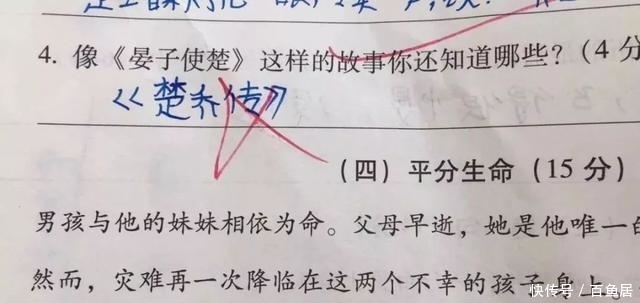 4. 像《晏子使楚》这样的故事你还知道哪些？(4分
《楚乔传》
(四) 平分生命 (15分)
男孩与他的妹妹相依为命。父母早逝，她是他唯一的
然而，灾难再一次降临在这两个不幸的孩子身上。
快传号/百鱼居